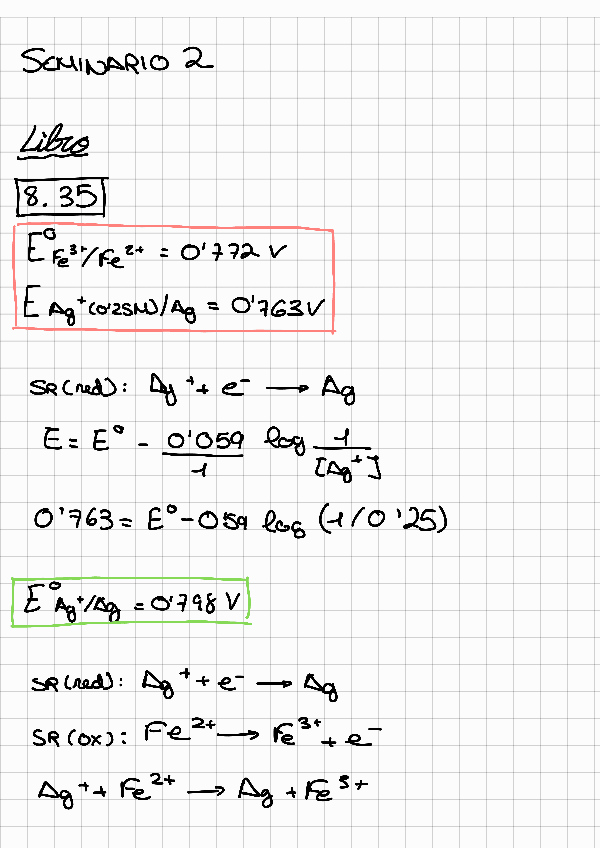 SEMINARIO 2
Libro
8.35
E⁰ Fe³⁺/Fe²⁺ = 0'772 V
E Ag⁺(0'25M)/Ag = 0'763V
SR(red): Ag⁺ + e⁻ → Ag
E = E⁰ - 0'059/1 log 1/[Ag⁺]
0'763 = E⁰ - 059 log (1/0'25)
E⁰ Ag⁺/Ag = 0'798 V
SR(red): Ag⁺ + e⁻ → Ag
SR(OX): Fe²⁺ → Fe³⁺ + e⁻
Ag⁺ + Fe²⁺ → Ag + Fe³⁺